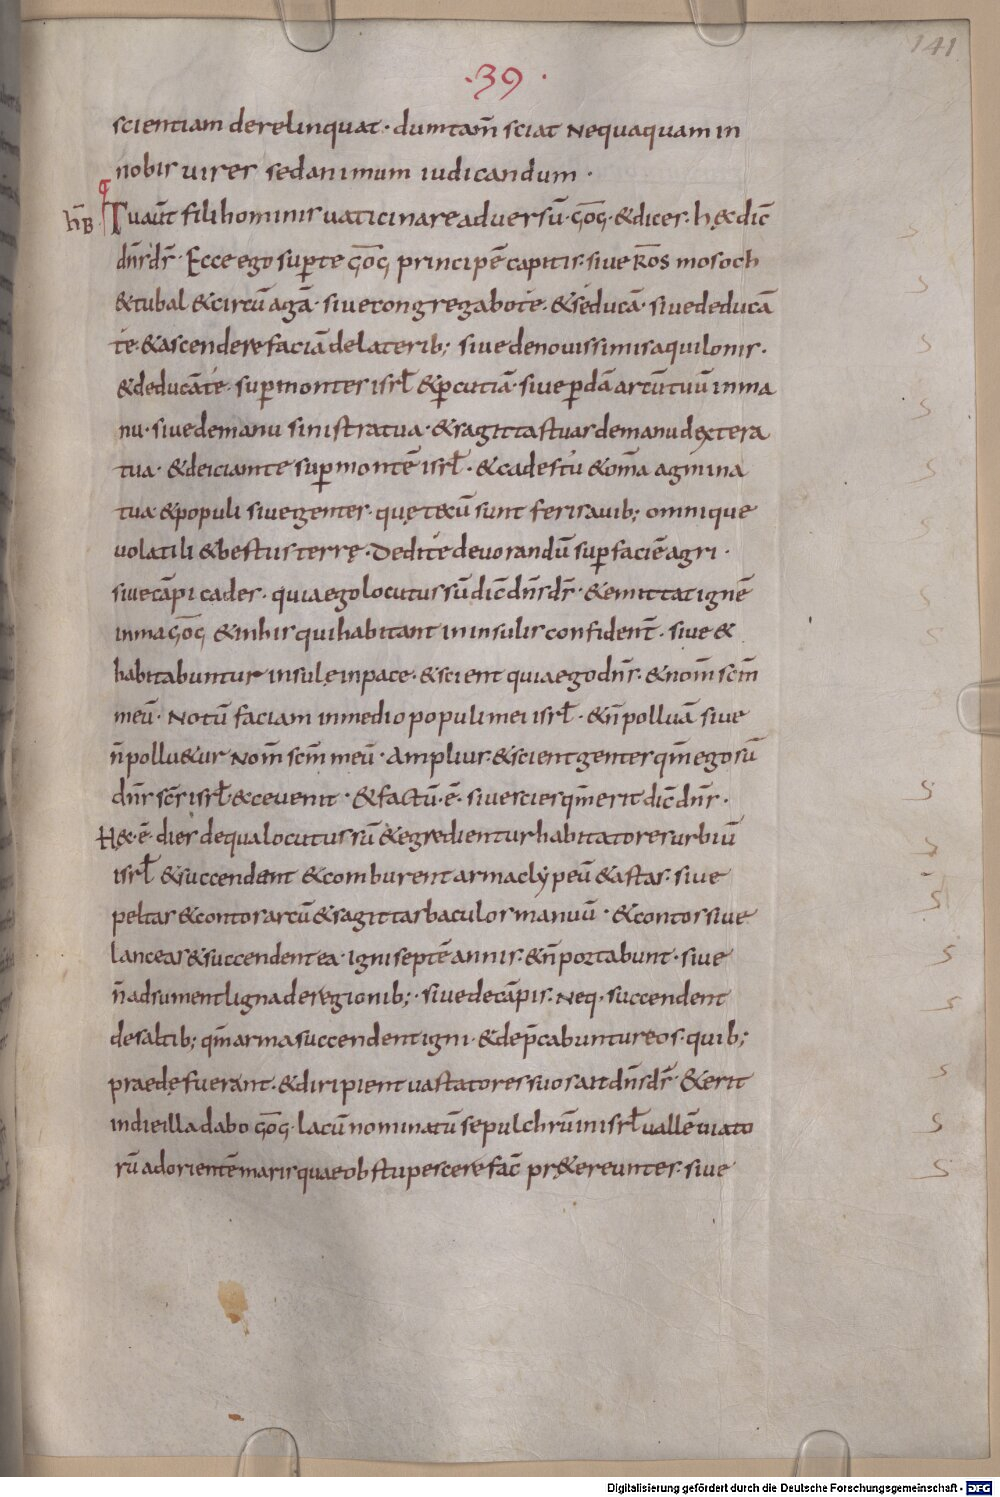 141
·39·
scientiam derelinquat· dumtam̄ sciat Nequaquam in
nobis vires sed animum iudicandum ·
hB̄ Tu aūt fili hominis vaticinare adversū· gōg· & dices· hęc dic̄
dn̄s ds̄· Ecce ego sup te gōg principē capitis· sive Ros mosoch
& tubal & circū agā· sive congregabo te· & seducā· sive deducā
te· & ascendere faciā de laterib; sive de novissimis aquilonis·
& deducā te· sup montes isrł & pcutiā· sive pdā arcū tuū in ma
nu· sive de manu sinistra tua· & sagittas tuas de manu dextera
tua· & deiciam te sup montē isrł· & cades tu & om̄a agmina
tua & populi sive gentes· quę tecū sunt feris avib; omnique
volatili & bestiis terrę· Dedi te devorandū sup faciē agri·
sive cāpi cades· quia ego locutus sū dic̄ dn̄s ds̄· & emittat ignē
in magōg & in his qui habitant in insulis confident̄· sive &
habitabuntur insulę in pace· & scient quia ego dn̄s· & nom̄ scm̄
meū· Notū faciam in medio populi mei isrł· & n̄ polluā sive
n̄ pollu&ur Nom̄ scm̄ meū· Amplius· & scient gentes qm̄ ego sū
dn̄s scs̄ isrł &ce venit· & factū· ē· sive scies qm̄ erit dic̄ dn̄s·
Hęc· ē· dies de qua locutus sū & egredientur habitatores urbiū
isrł & succendent & comburent arma clypeū & astas· sive
peltas & contos arcū & sagittas baculos manuū· & contos sive
lanceas & succendent ea· igni septē annis· & n̄ portabunt· sive
n̄ adsument ligna de regionib;· sive de cāpis· Neq· succendent
de saltib; qm̄ arma succendent igni· & dep̄cabuntur eos· quib;
praedę fuerant· & diripient vastatores suos ait dn̄s ds̄· & erit
in die illa dabo gōg· lacū nominatū sepulchrū in isrł vallē viato
rū ad orientē maris quae obstupescere fac̄ pręt&ereuntes· sive
Digitalisierung gefördert durch die Deutsche Forschungsgemeinschaft - DFG